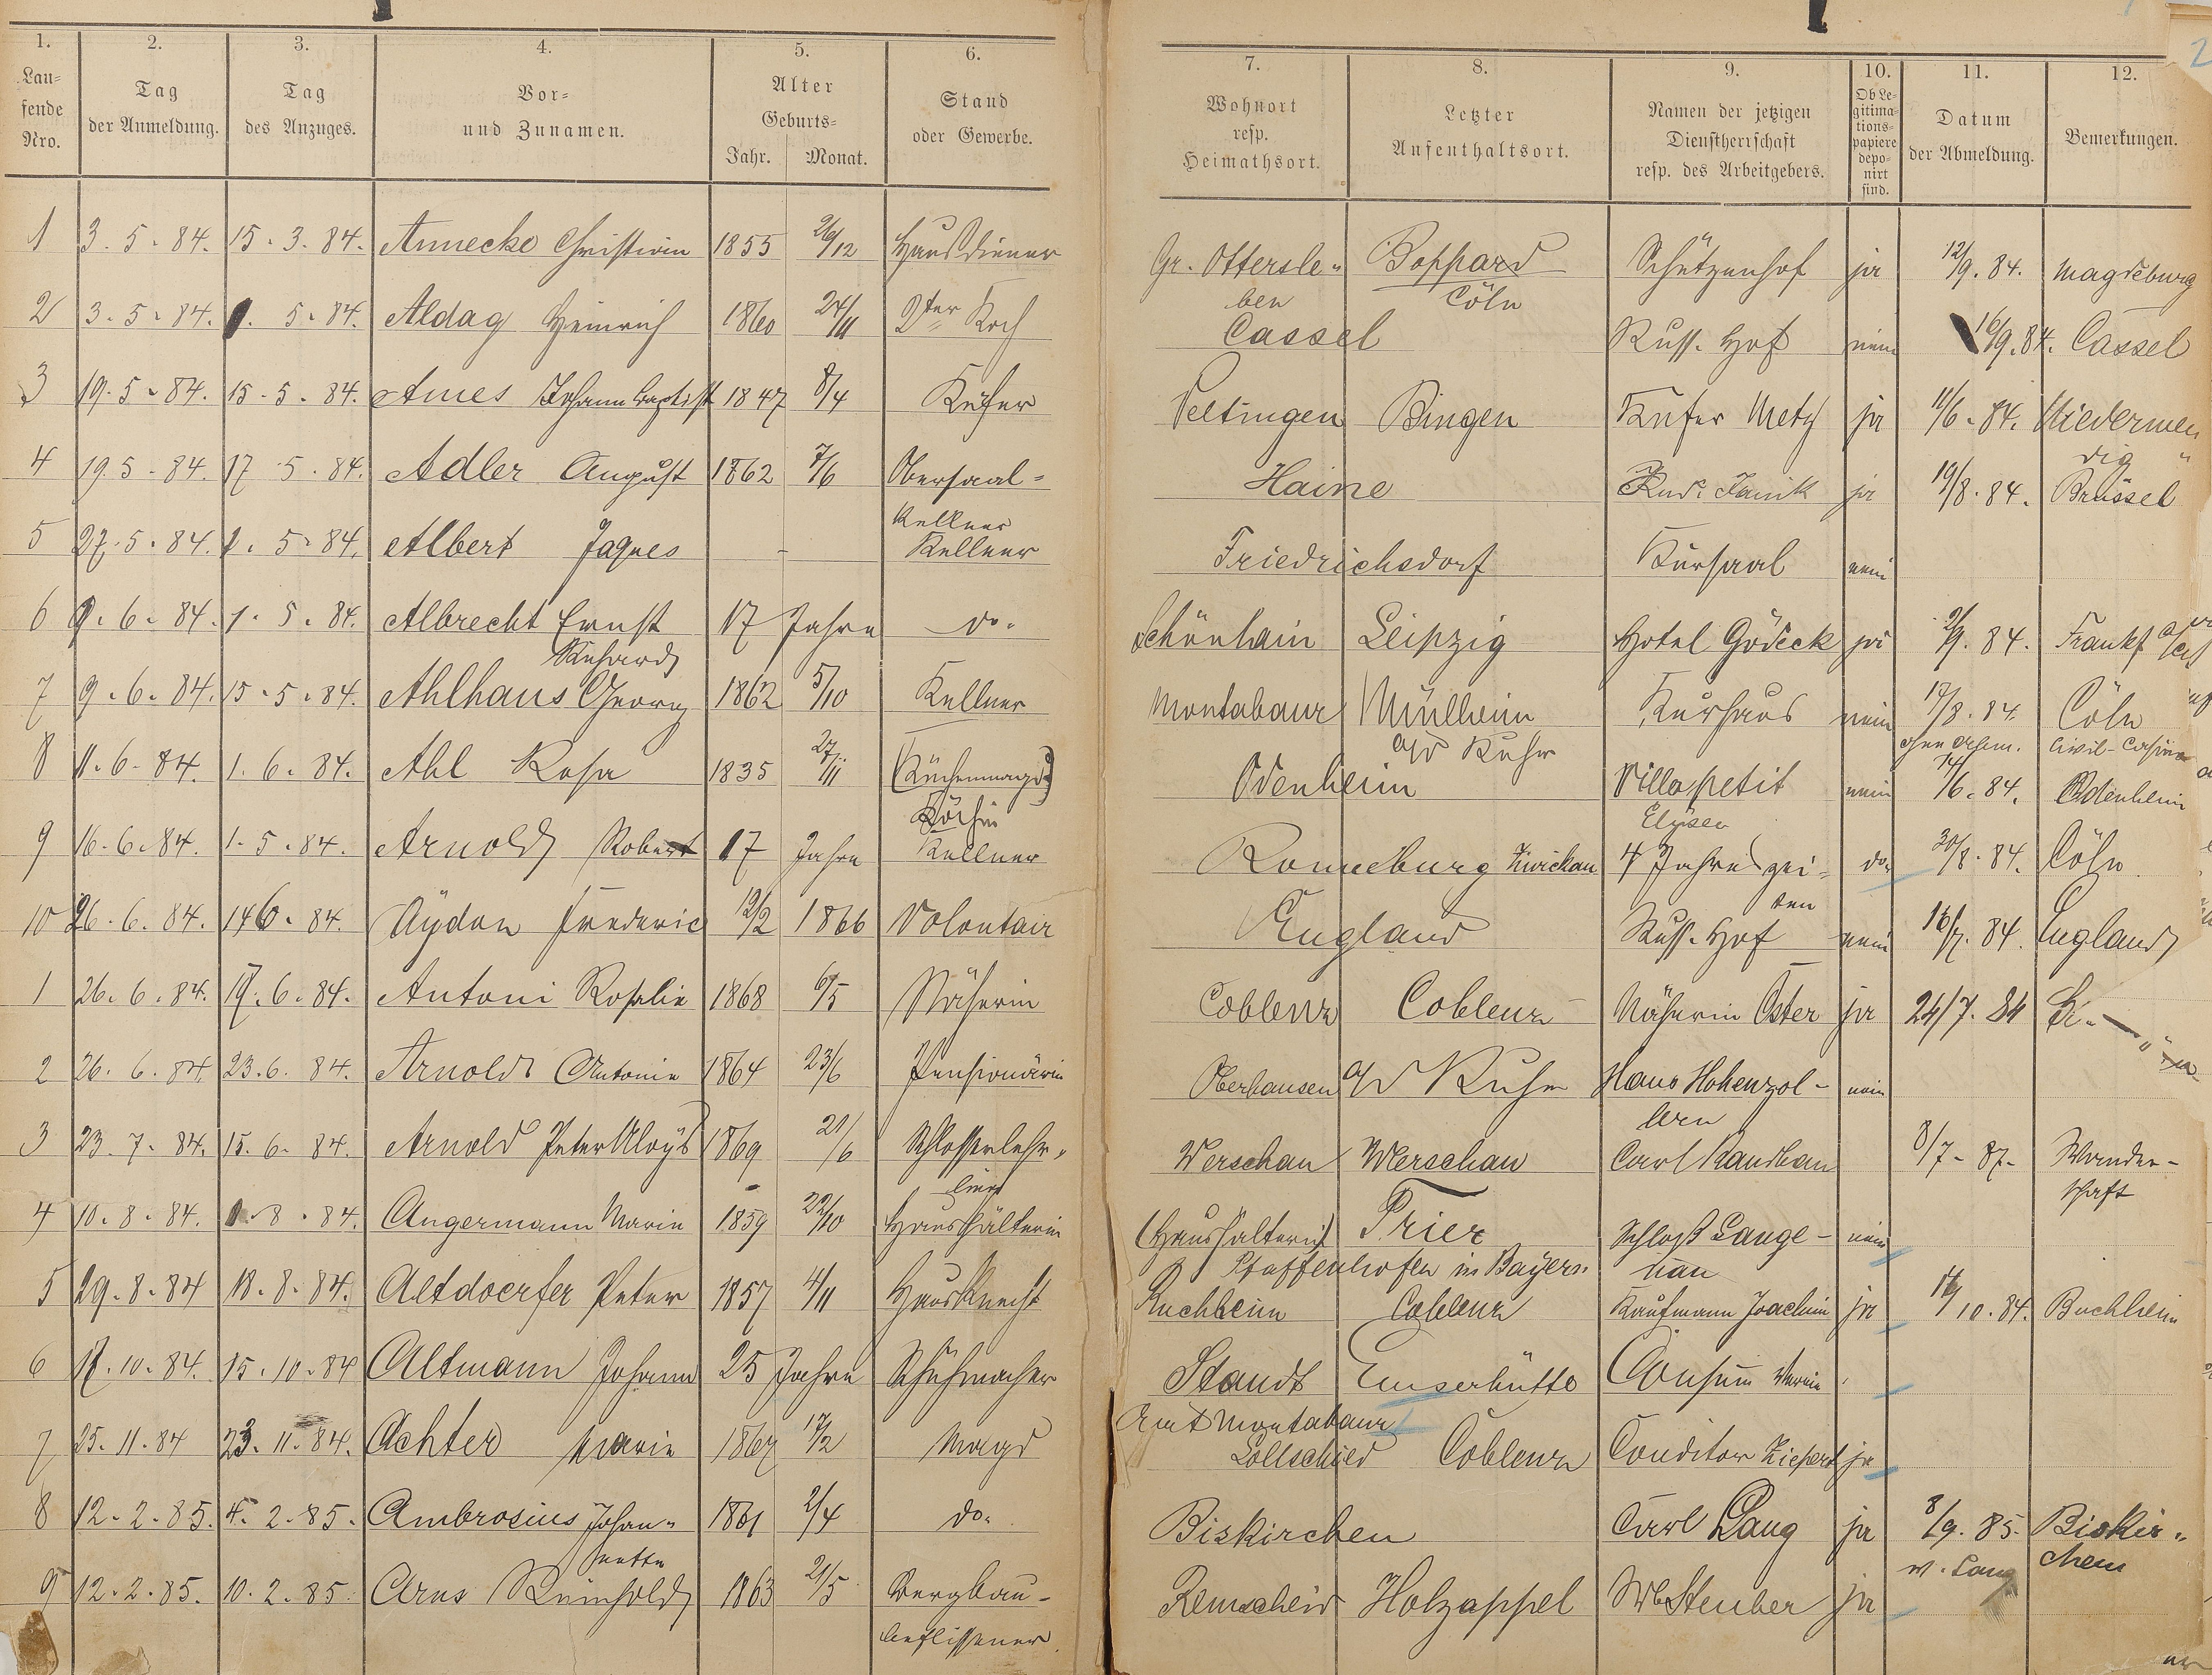 1. 2. 3. 4. 5. 6. 7. 8. 9. 10. 11. 12.
Lau-fende Nro. Tag der Anmeldung. Tag des Anzuges. Vor- und Zunamen. Alter Geburts- Jahr. Monat. Stand oder Gewerbe. Wohnort resp. Heimathsort. Letzter Aufenthaltsort. Namen der jetzigen Dienstherrschaft resp. des Arbeitgebers. Ob Le-gitima-tions-papiere depo-nirt sind. Datum der Abmeldung. Bemerkungen.
2
1 3. 5. 84. 15. 3. 84. Annecke Christian 1855 26/12 Hausdiener Gr. Ottersle- Boppard Schützenhof ja 12/9. 84. Magdeburg
ben Cöln
2 3. 5. 84. 1. 5. 84. Aldag Heinrich 1860 24/11 2ter Koch Cassel Russ. Hof nein 16/9. 84. Cassel
3 19. 5. 84. 15. 5. 84. Ames Johann Baptist 1847 8/4 Küfer Veltingen Bingen Küfer Metz ja 11/6. 84. Niedermen
dig
4 19. 5. 84. 17. 5. 84. Adler August 1862 7/6 Obersaal- Haine ja 19/8. 84. Brüssel
Kellner
5 27. 5. 84. 1. 5. 84. Albert Jaques Kellner Friedrichsdorf Kursaal nein
6 9. 6. 84. 1. 5. 84. Albrecht Ernst 17 Jahre do. Schönhain Leipzig Hotel Gödeck ja 2/9. 84. Frankf
7 9. 6. 84. 15. 5. 84. Ahlhaus Georg 1862 5/10 Kellner Montabaur Mülheim Kurhaus nein 17/8. 84. Cöln
a/d Ruhr Civil-Casino
8 11. 6. 84. 1. 6. 84. Ahl Rosa 1835 27/11 (Küchenmagd) Odenheim Villa petit nein 14/6. 84. Odenheim
Köchin Elysee
9 16. 6. 84. 1. 5. 84. Arnold Robert 17 Jahre Kellner Ronneburg Zwickau 4 Jahreszei- do. 30/8. 84. Cöln
ten
10 26. 6. 84. 14 6. 84. Aydon Frederic 12/2 1866 Volontair England Russ. Hof nein 16/7. 84. England
1 26. 6. 84. 17. 6. 84. Antoni Rosalie 1868 6/5 Näherin Coblenz Coblenz Näherin Oster ja 24/7. 84
2 26. 6. 84. 23. 6. 84. Arnold Antonie 1864 23/6 Pensionärin Oberhausen a/d Ruhr Haus Hohenzol- nein
lern
3 23. 7. 84. 15. 6. 84. Arnold Peter Aloÿs 1869 21/6 Schlosserlehr- Werschau Werschau Carl Kandhau 8/7. 87. Wander-
ling schaft
4 10. 8. 84. 1. 8. 84. Angermann Marie 1859 22/10 Haushälterin (Haushälterin) Trier Schloß Lange- nein
Pfaffenhofen in Bayern nau
5 29. 8. 84 18. 8. 84. Altdoerfer Peter 1857 4/11 Hausknecht Buchheim Coblenz Kaufmann Joachim ja 16/10. 84. Buchheim
6 17. 10. 84. 15. 10. 84 Altmann Johann 25 Jahre Schuhmacher Staudt Emserhütte Consum Verein
Amt Montabaur
7 25. 11. 84 23. 11. 84. Achter Marie 1867 17/2 Magd Lollschied Coblenz Conditor Ziepert ja
8 12. 2. 85. 4. 2. 85. Ambrosius Johan- 1861 2/4 do. Biskirchen Carl Lang ja 8/9. 85. Biskir-
nette chen
9 12. 2. 85. 10. 2. 85. Arns Reinhold 1863 21/5 Bergbau- Remscheid Holzappel Wb Steuber ja
beflissener